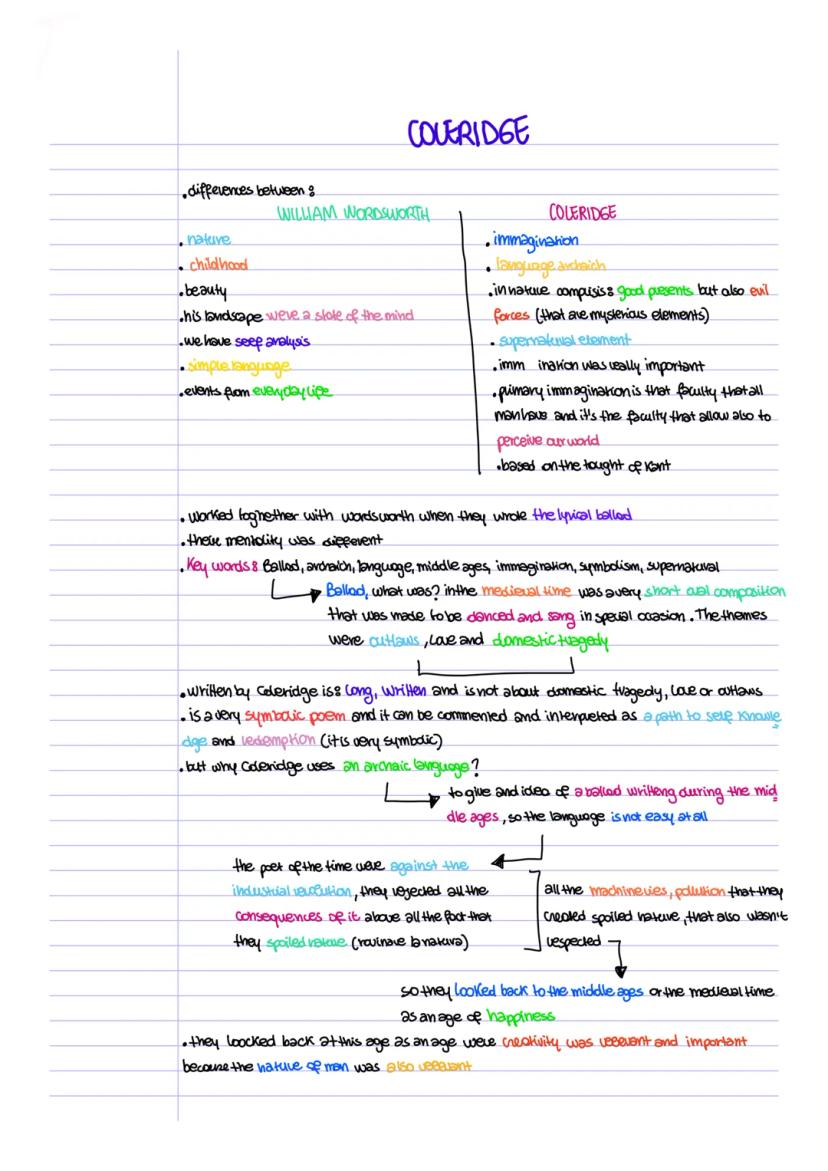 COLERIDGE
.differences between:
WILLIAM WORDSWORTH
. nature
. childhood
.beauty
.his landscape were a state of the mind
.we have seef analysis
. simple language
.events from everyday life
COLERIDGE
. immagination
. language archaich
.in nature compusis: good presents but also evil
forces (that are mysterious elements)
. supernatural element
.imm ination was really important
.primary immagination is that faculty that all
man have and it's the faculty that allow also to
perceive our world
.based on the tought of Kant
. worked toghether with wordsworth when they wrote the lyrical ballad
.their mentality was different
.Key words: Ballad, archaich, language, middle ages, immagination, symbolism, supernatural
Ballad, what was? in the medieval time was a very short oral composition
that was made to be danced and sang in special occasion. The themes
were outlaws, love and domestic tragedy
.written by Coleridge is: long, written and is not about domestic tragedy, love or outlaws
. is a very symbolic poem and it can be commented and interpreted as a path to self knowle
dge and redemption (it is very symbolic)
.but why Coleridge uses an archaic language?
to give and idea of a ballad writteng during the mid
dle ages, so the language is not easy at all
the poet of the time were against the
industrial revolution, they rejected all the
consequences of it above all the fact that
they spoiled nature (rovinare la natura)
all the machineries, pollution that they
created spoiled nature, that also wasn't
respected
so they looked back to the middle ages or the medieval time
as an age of happiness
.they loocked back at this age as an age were creativity was relevant and important
because the nature of man was also relevant